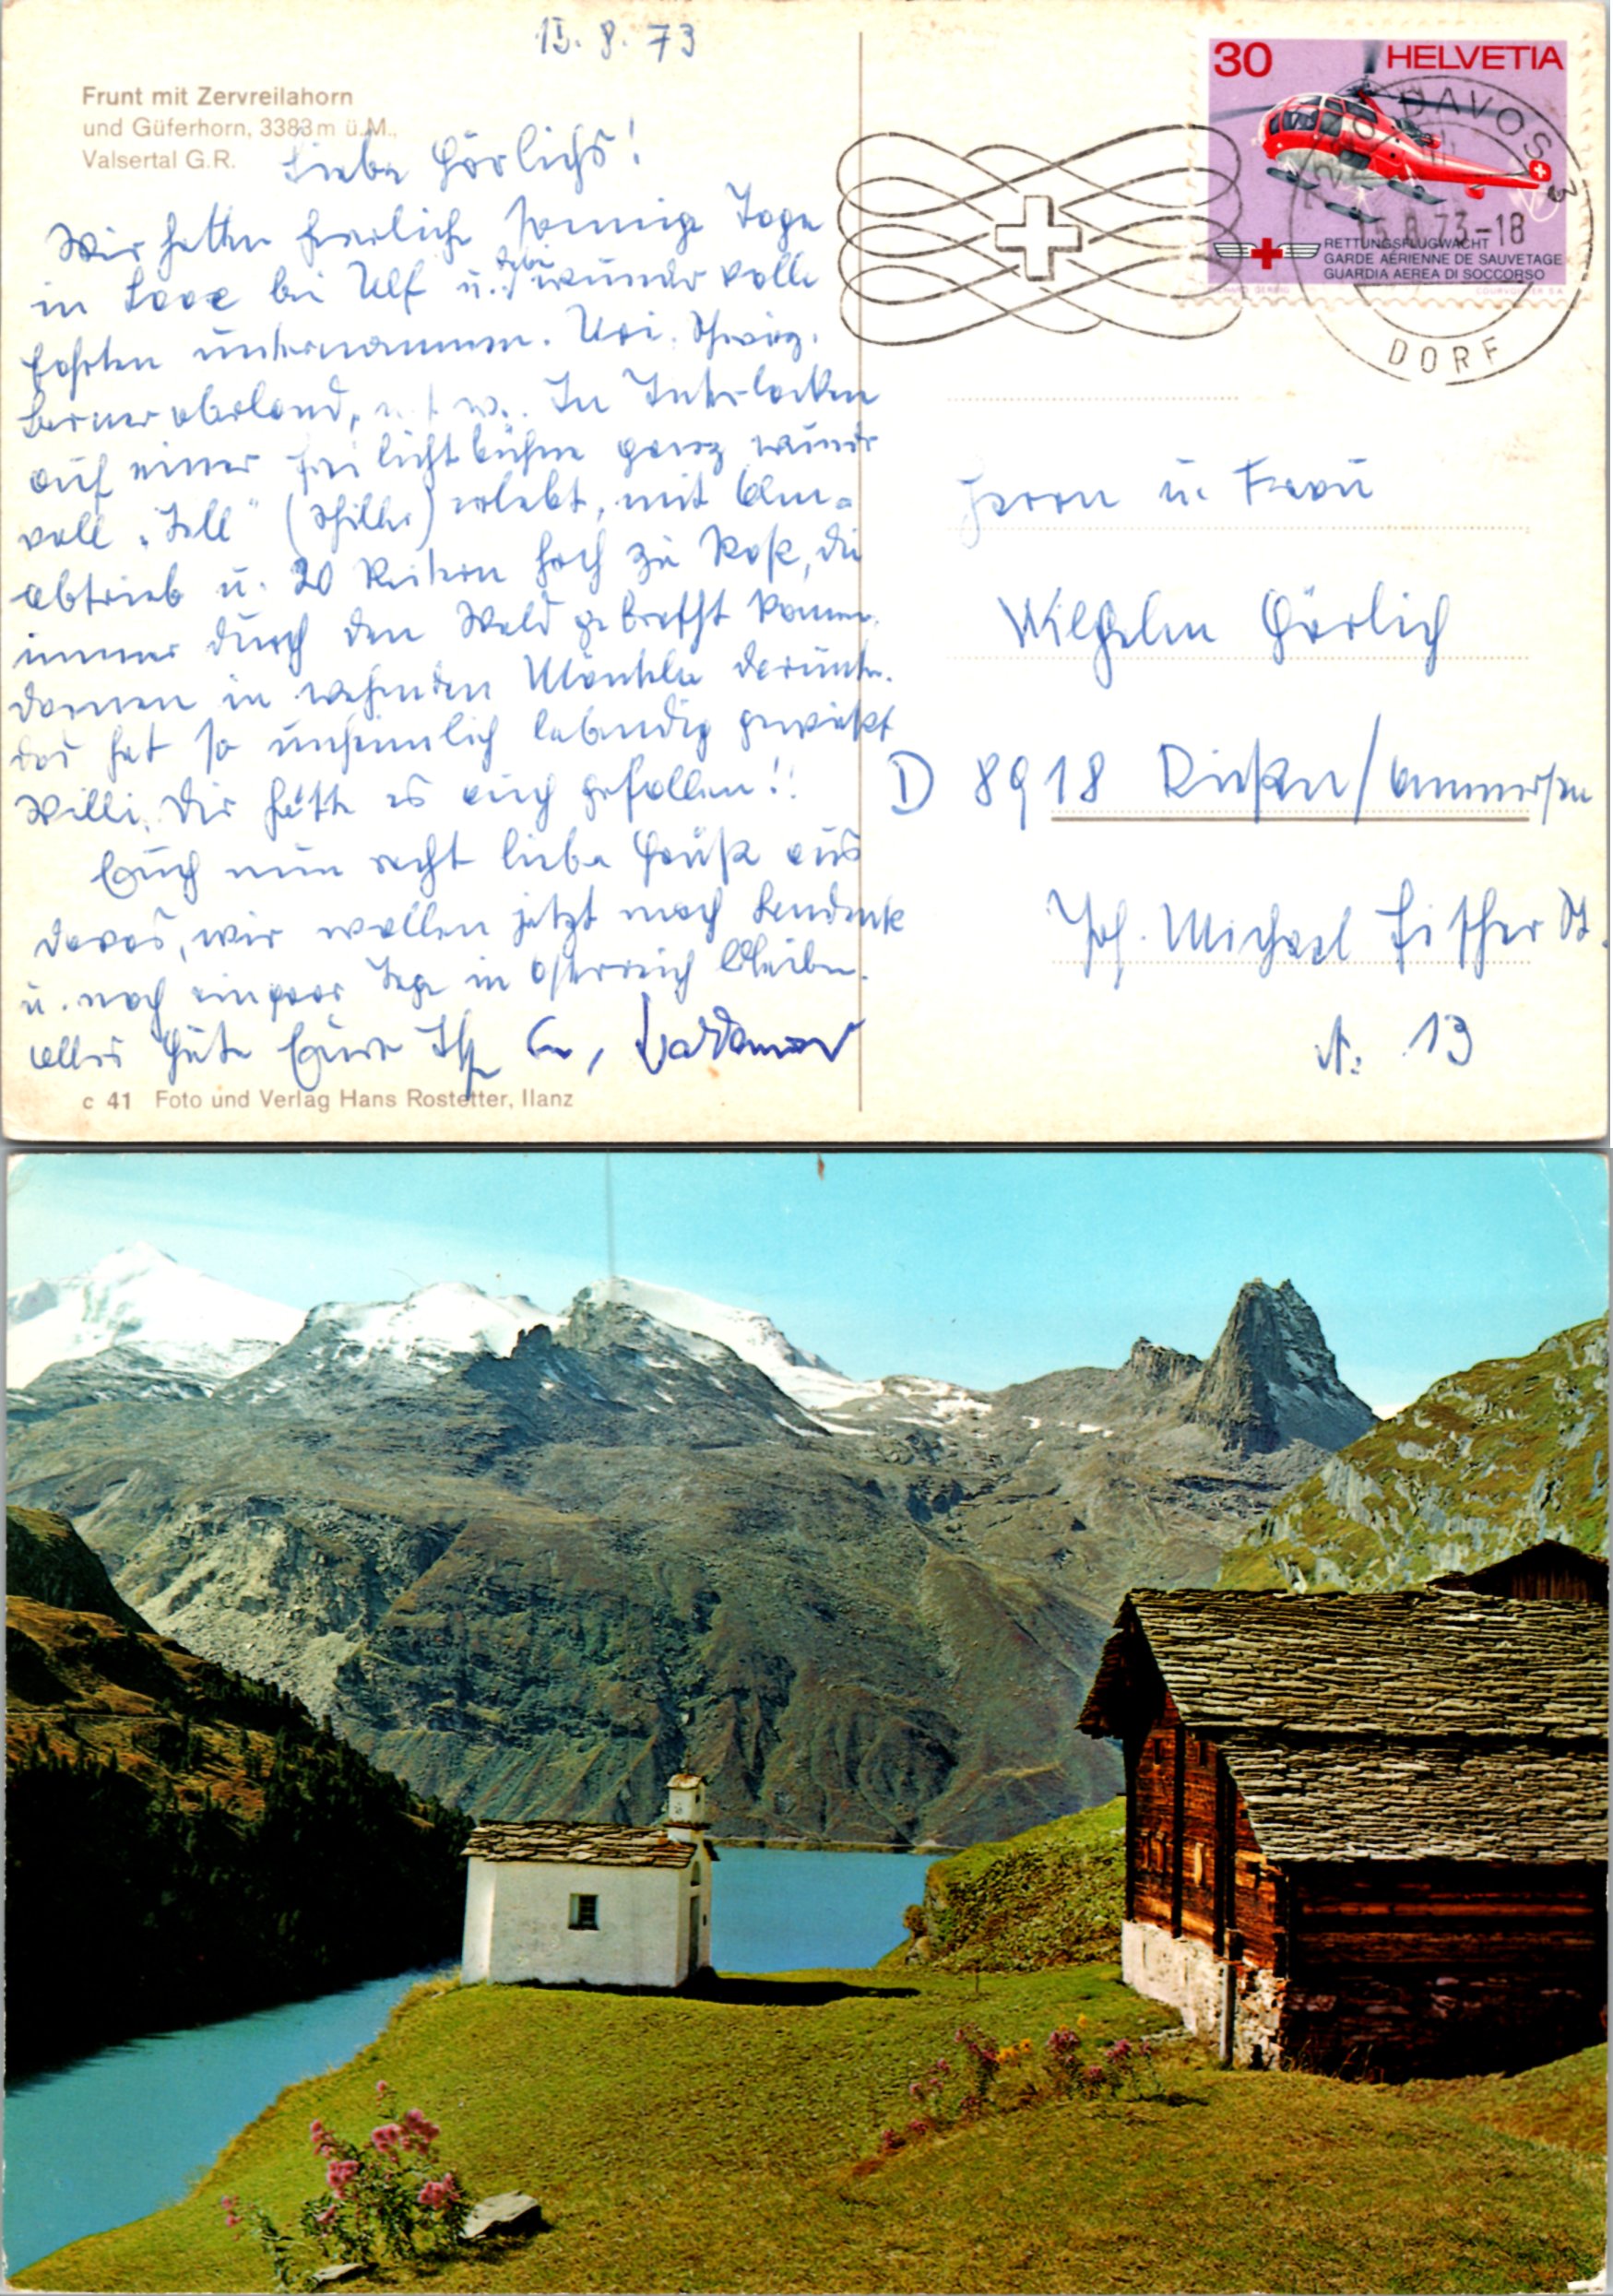 15. 8. 73
Frunt mit Zervreilahorn
und Güferhorn, 3383 m ü.M.,
Valsertal G.R.
Liebe Görlichs!
Wir hatten herrliche sonnige Tage
in bei Ulf u. wundervolle
Fahrten unternommen. Uri, Schwyz,
Berner Oberland, u.s.w.. In Interlacken
auf einer Freilichtbühne ganz wunder
voll „Tell" (Schiller) erlebt, mit Alm-
abtrieb u. 20 Reitern hoch zu Roß, die
immer durch den Wald gebrescht kamen,
Damen in wehenden Mänteln darunter.
das hat so unheimlich lebendig gewirkt
Willi, Dir hätte es auch gefallen!!
Euch nun recht liebe Grüße aus
Davos, wir wollen jetzt nach
u. noch ein paar Tage in Österreich bleiben.
alles Gute Eure
c 41 Foto und Verlag Hans Rostetter, Ilanz
30 HELVETIA
RETTUNGSFLUGWACHT
GARDE AÉRIENNE DE SAUVETAGE
GUARDIA AEREA DI SOCCORSO
COURVOISIER S.A.
DAVOS
15.8.73-18
DORF
Herrn u. Frau
Wilhelm Görlich
D 8918 Dießen/Ammersee
Joh. Michael Fischer St.
N. 13